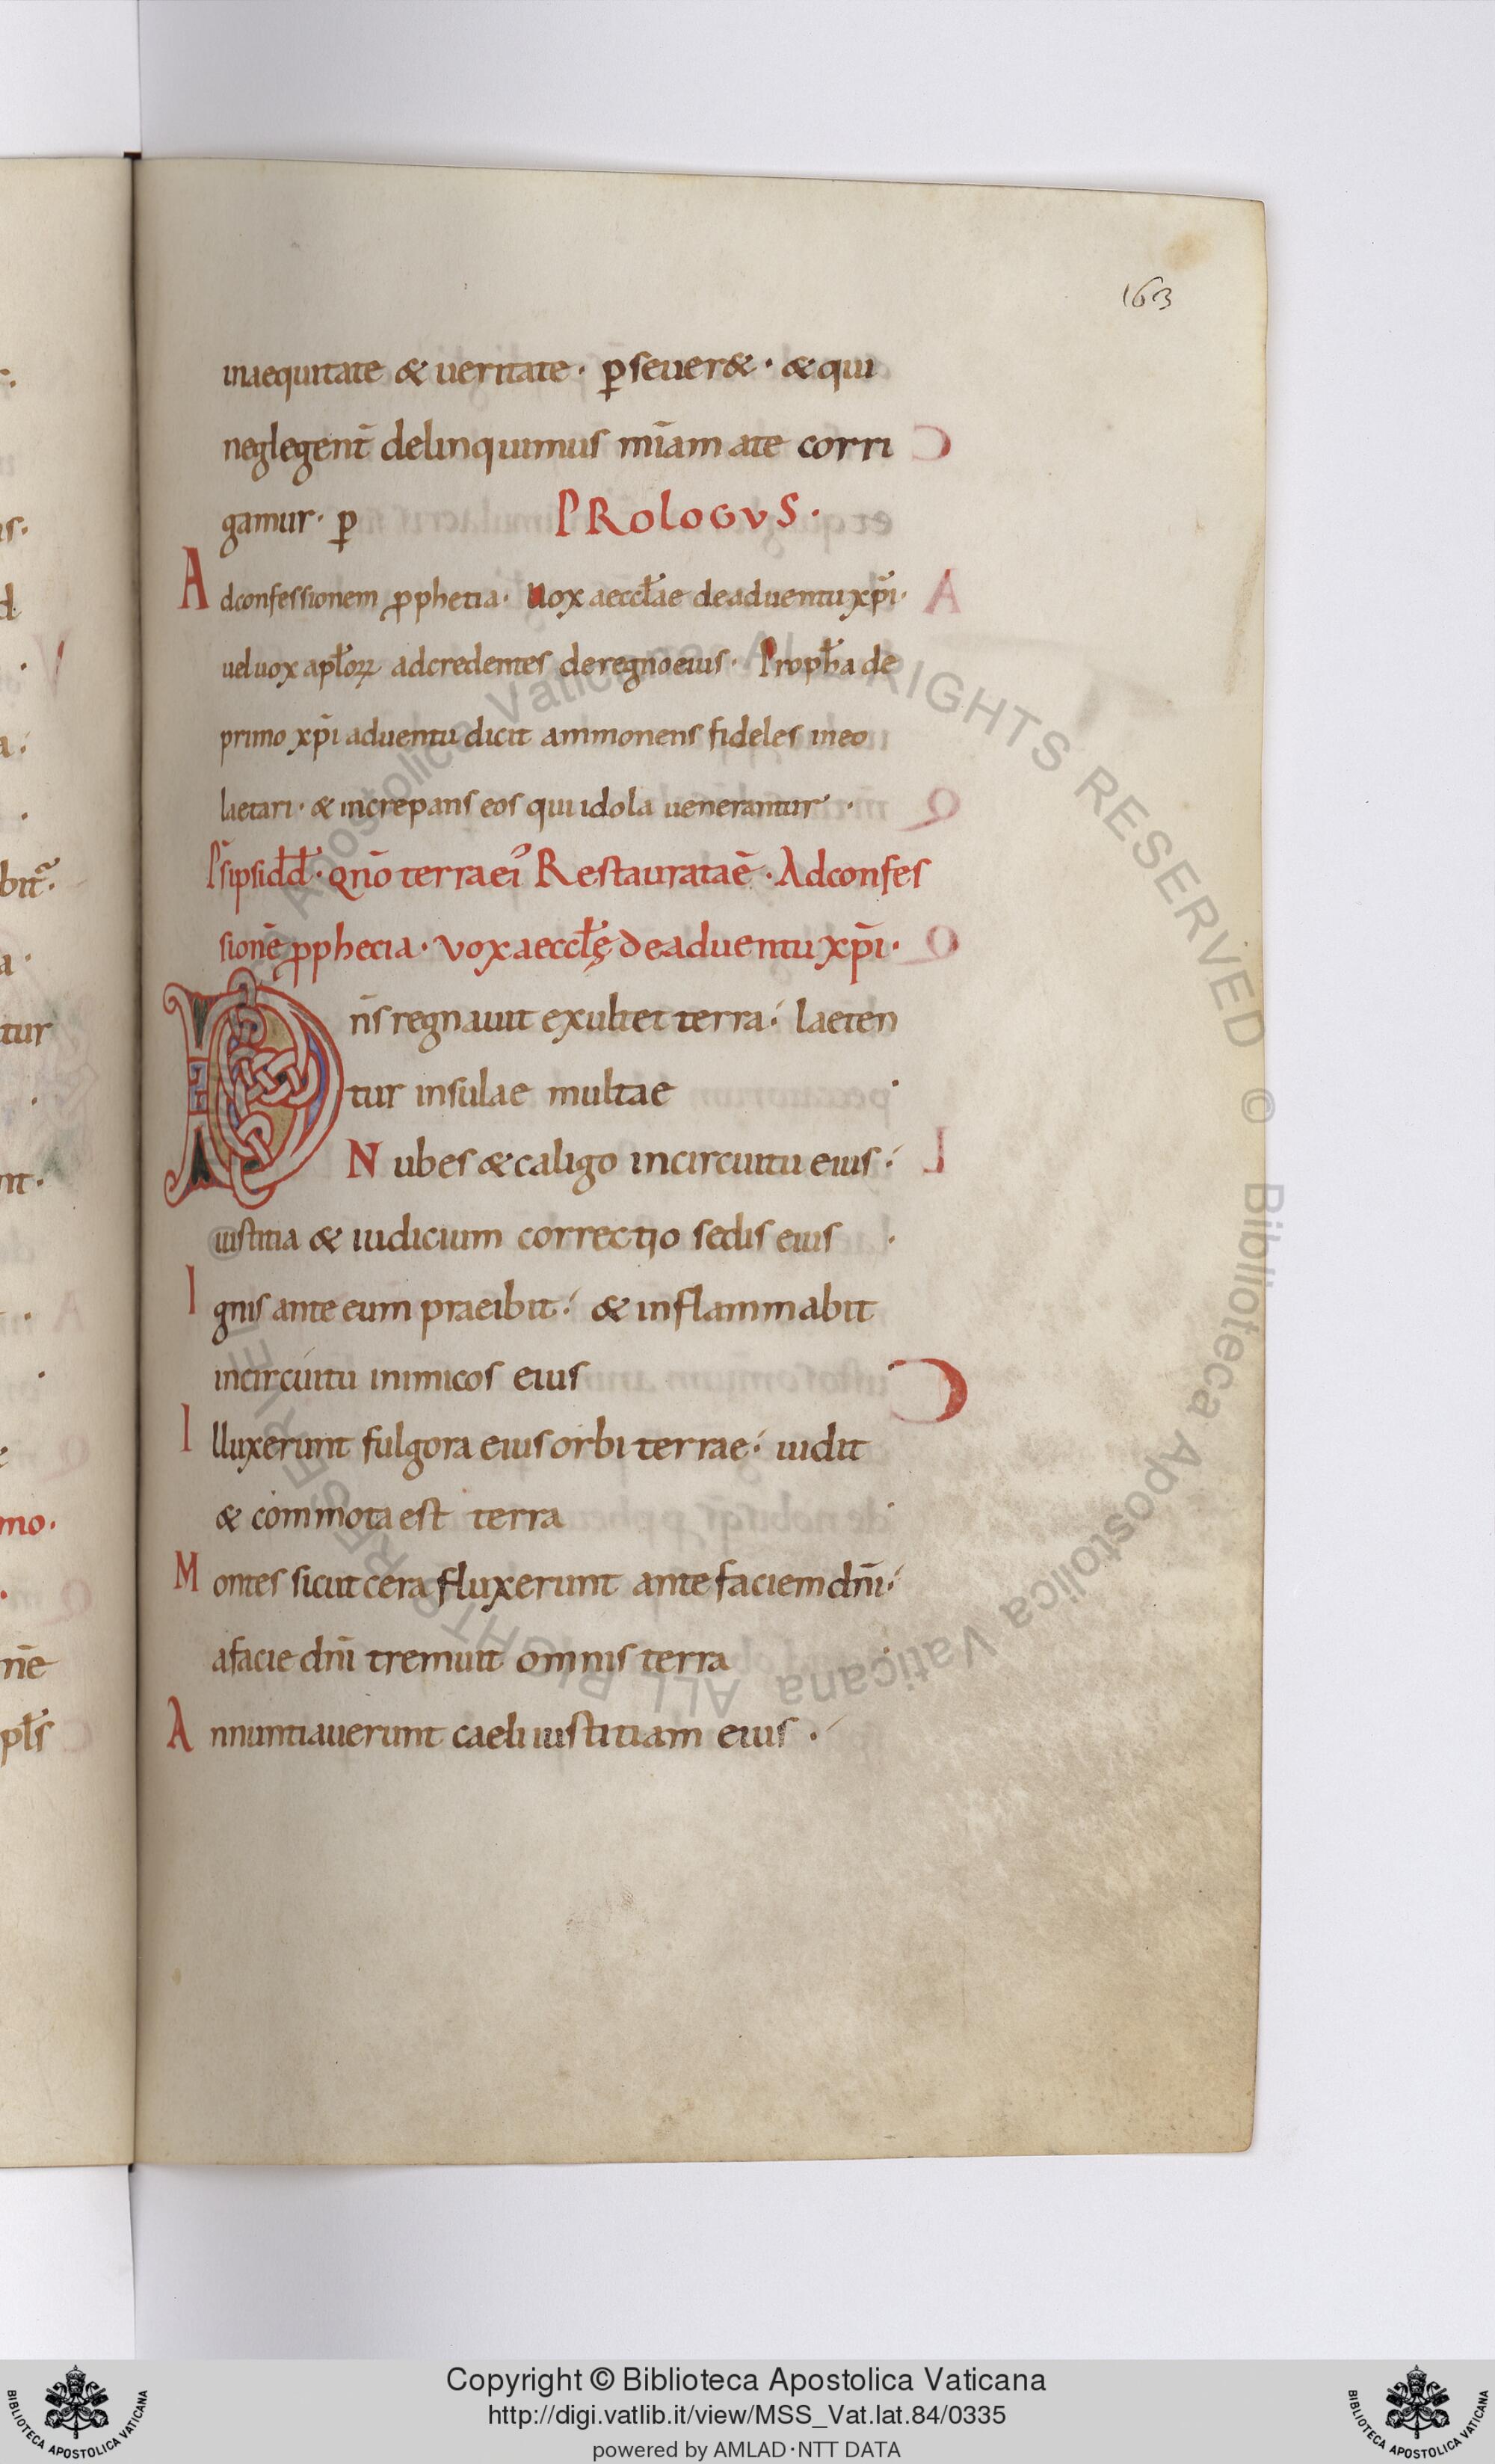 163
inaequitate & ueritate· p̱seuer&· & qui
neglegent̄ delinquimus mīam ate corri
gamur· p̱
PROLOGVS·
Adconfessionem p̱phetia· Uox aeccłae deaduentu xp̄i·
uel uox apłoꝝ adcredentes deregno eius· Propħa de
primo xp̄i aduentu dicit ammonens fideles ineo
laetari· & increpans eos qui idola uenerantur·
P̄s ipsi dd̄· qn̄o terra ei᾽ Restaurata ē· Adconfes
sionē p̱phecia· vox aeccłę deaduentu xp̄i·
Dn̄s regnauit exultet terra· laeten
tur insulae multae·
Nubes & caligo incircuitu eius·
iustitia & iudicium correctio sedis eius·
Ignis ante eum praeibit· & inflammabit
incircuitu inimicos eius·
Illuxerunt fulgora eius orbi terrae· uidit
& commota est terra·
Montes sicut cera fluxerunt ante faciem dn̄i·
afacie dn̄i tremuit omnis terra·
Annuntiauerunt caeli iustitiam eius·
Copyright © Biblioteca Apostolica Vaticana
http://digi.vatlib.it/view/MSS_Vat.lat.84/0335
powered by AMLAD·NTT DATA